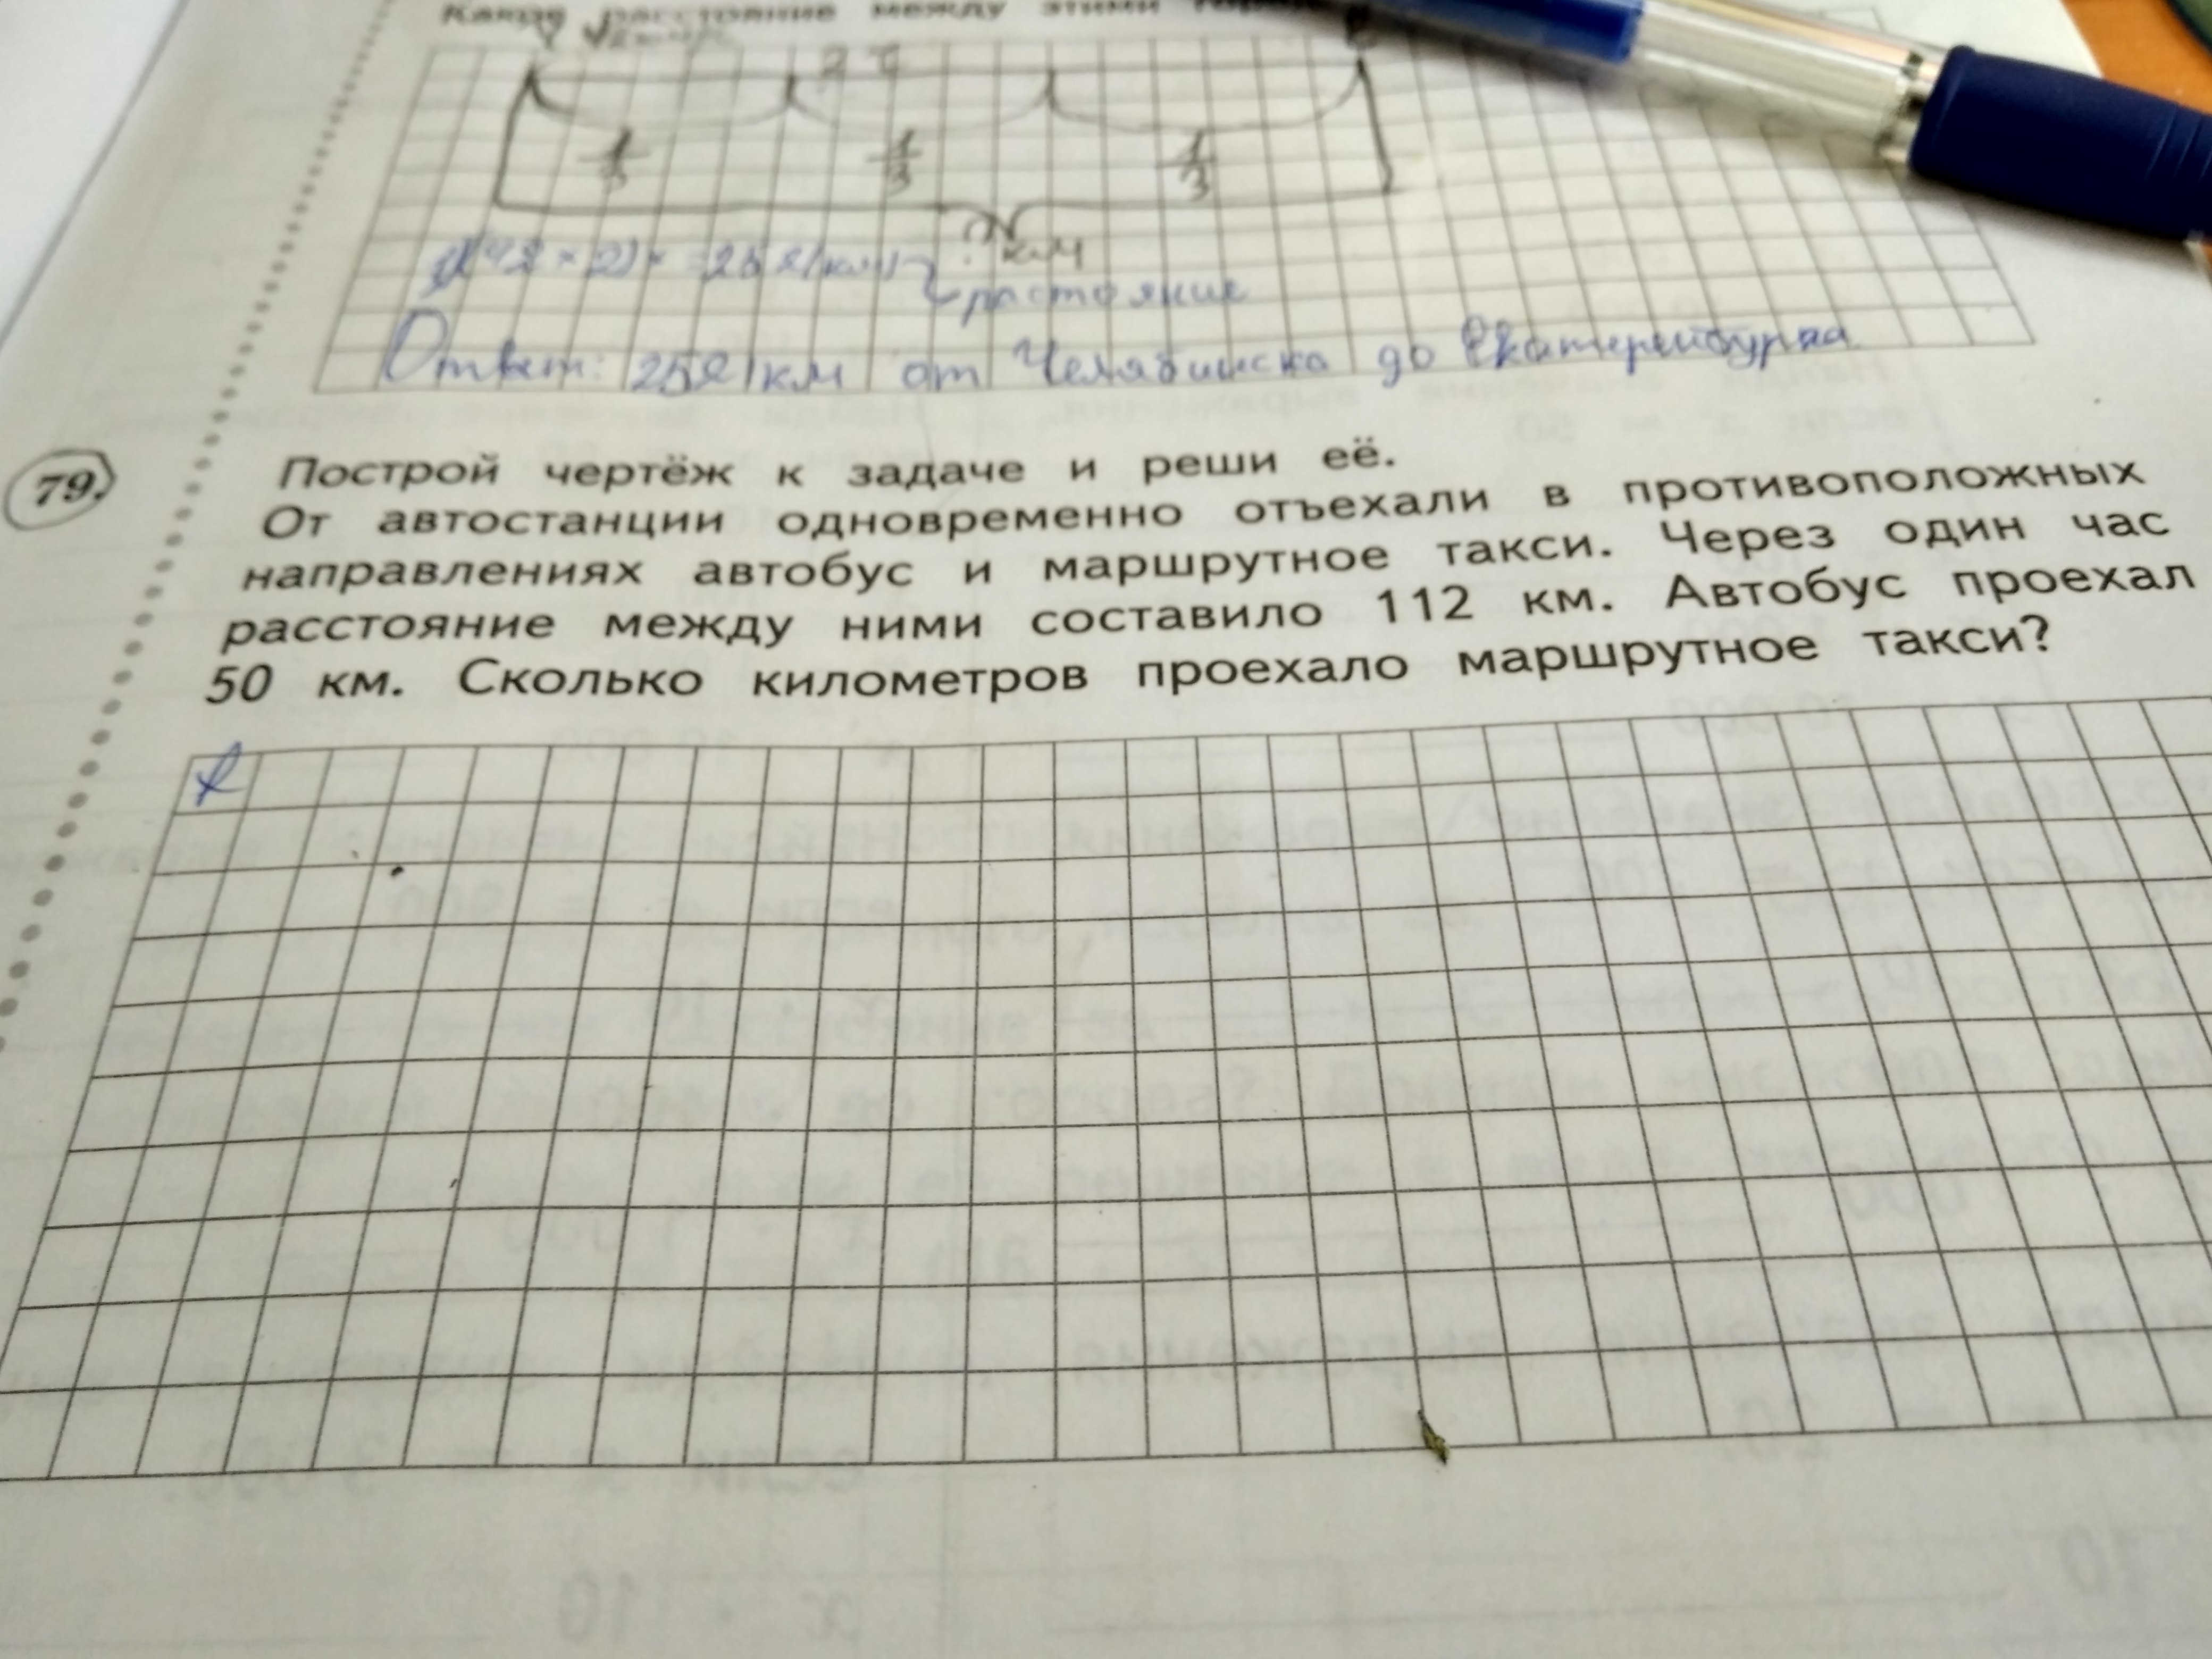 Какое расстояние между этими
2 ч
1/3 1/3 1/3
? км
= 252 (км)
растояние
Ответ: 252 км от Челябинска до Екатеринбурга
79. Построй чертёж к задаче и реши её.
От автостанции одновременно отъехали в противоположных
направлениях автобус и маршрутное такси. Через один час
расстояние между ними составило 112 км. Автобус проехал
50 км. Сколько километров проехало маршрутное такси?